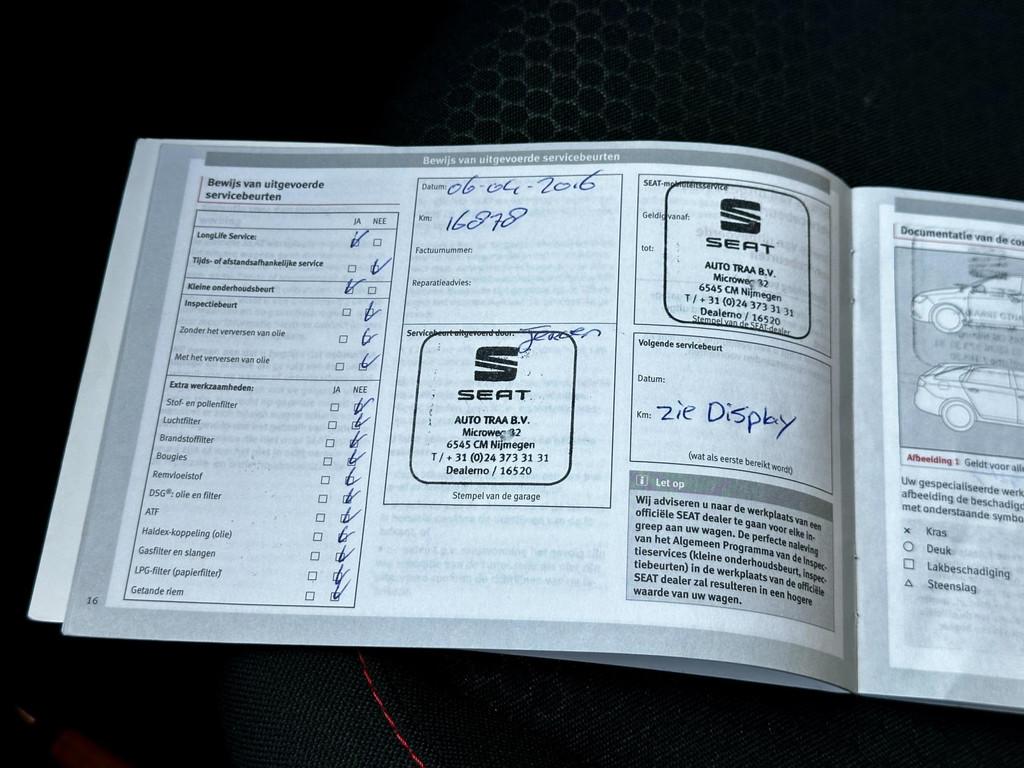 Bewijs van uitgevoerde servicebeurten
Bewijs van uitgevoerde
servicebeurten
JA NEE
LongLife Service:
Tijds- of afstandsafhankelijke service
Kleine onderhoudsbeurt
Inspectiebeurt
Zonder het verversen van olie
Met het verversen van olie
Extra werkzaamheden: JA NEE
Stof- en pollenfilter
Luchtfilter
Brandstoffilter
Bougies
Remvloeistof
DSG®: olie en filter
ATF
Haldex-koppeling (olie)
Gasfilter en slangen
LPG-filter (papierfilter)
Getande riem
16
Datum: 06-04-2016
Km: 16878
Factuurnummer:
Reparatieadvies:
Servicebeurt uitgevoerd door: Jeroen
SEAT
AUTO TRAA B.V.
Microweg 32
6545 CM Nijmegen
T / + 31 (0)24 373 31 31
Dealerno / 16520
Stempel van de garage
SEAT-mobiliteitsservice
Geldig vanaf:
tot:
SEAT
AUTO TRAA B.V.
Microweg 32
6545 CM Nijmegen
T / + 31 (0)24 373 31 31
Dealerno / 16520
Stempel van de SEAT-dealer
Volgende servicebeurt
Datum:
Km: zie Display
(wat als eerste bereikt wordt)
i Let op
Wij adviseren u naar de werkplaats van een
officiële SEAT dealer te gaan voor elke in-
greep aan uw wagen. De perfecte naleving
van het Algemeen Programma van de Inspec-
tieservices (kleine onderhoudsbeurt, inspec-
tiebeurten) in de werkplaats van de officiële
SEAT dealer zal resulteren in een hogere
waarde van uw wagen.
Documentatie van de
Afbeelding 1 Geldt voor
Uw gespecialiseerde
afbeelding de
met onderstaande
× Kras
○ Deuk
□ Lakbeschadiging
△ Steenslag